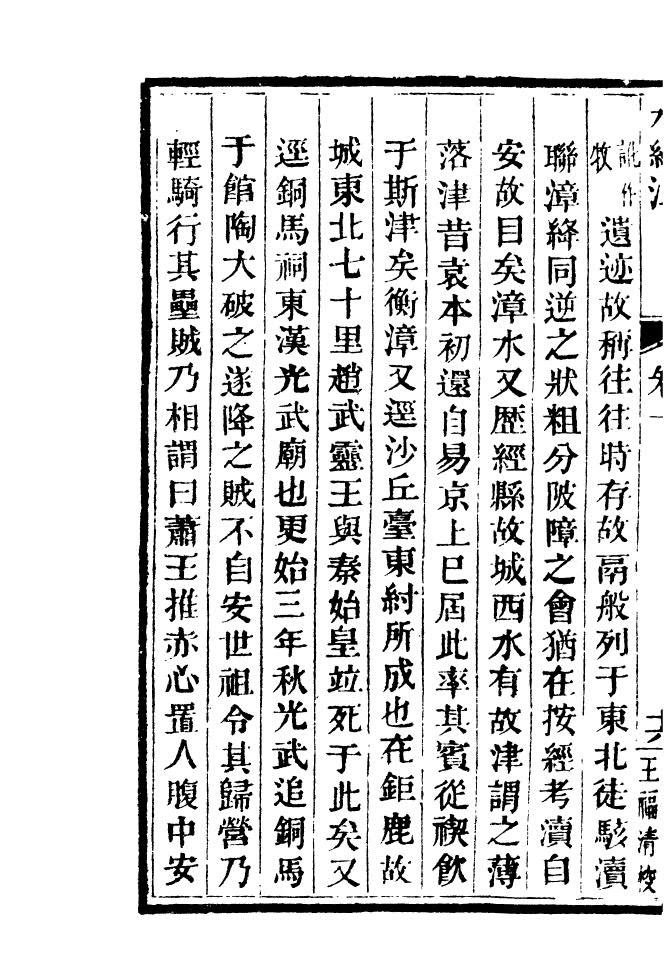 訛作
牧
遺迹故稱往往時存故鬲般列于東北徒駭瀆
聯漳絳同逆之狀粗分陂障之會猶在按經考瀆自
安故目矣漳水又歷經縣故城西水有故津謂之薄
落津昔袁本初還自易京上巳屆此率其賓從禊飲
于斯津矣衡漳又逕沙丘臺東紂所成也在鉅鹿故
城東北七十里趙武靈王與秦始皇竝死于此矣又
逕銅馬祠東漢光武廟也更始三年秋光武追銅馬
于館陶大破之遂降之賊不自安世祖令其歸營乃
輕騎行其壘賊乃相謂曰蕭王推赤心置人腹中安